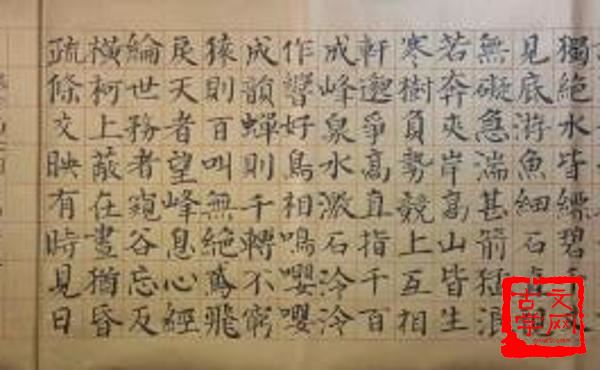 獨絕水皆縹碧
見底游魚細石
無礙急湍甚箭猛浪
若奔夾岸高山皆生
寒樹負勢競上互相
軒邈爭高直指千百
成峰泉水激石泠泠
作響好鳥相鳴嚶嚶
成韻蟬則千轉不窮
猿則百叫無絕鳶飛
戾天者望峰息心經
綸世務者窺谷忘反
橫柯上蔽在晝猶昏
疏條交映有時見日